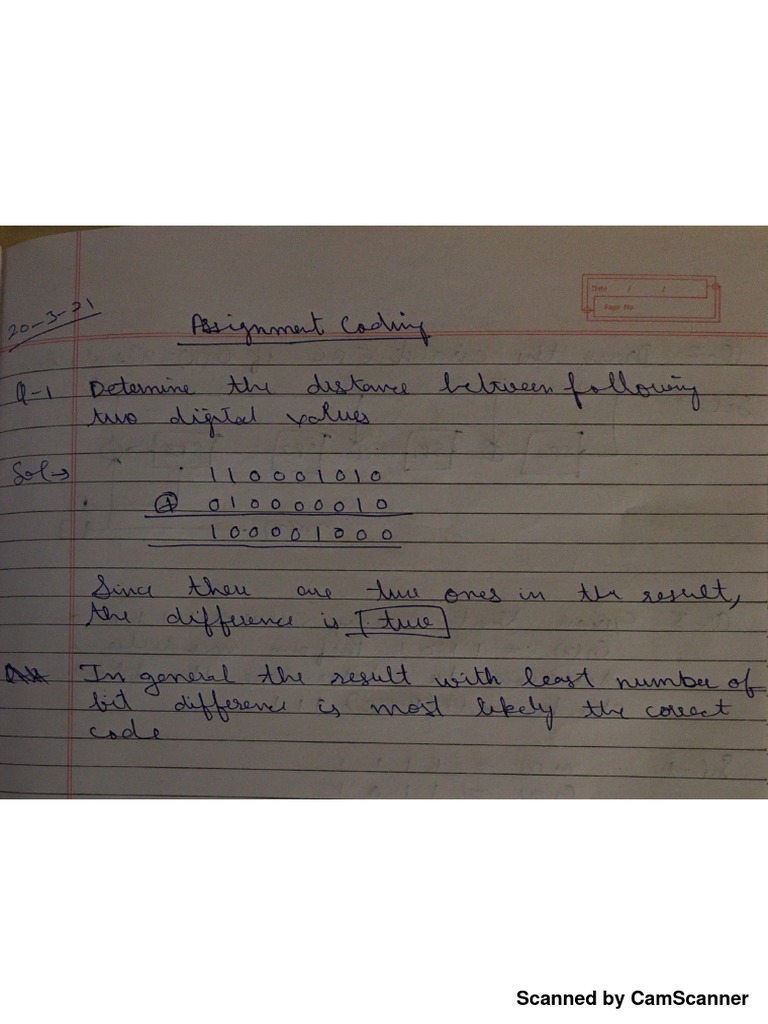 Date / /
Page No.
20-3-21
Assignment Coding
Q-1 Determine the distance between following
two digital values
Sol→ 110001010
⊕ 010000010
100001000
Since there are two ones in the result,
the difference is two
In general the result with least number of
bit difference is most likely the correct
code
Scanned by CamScanner